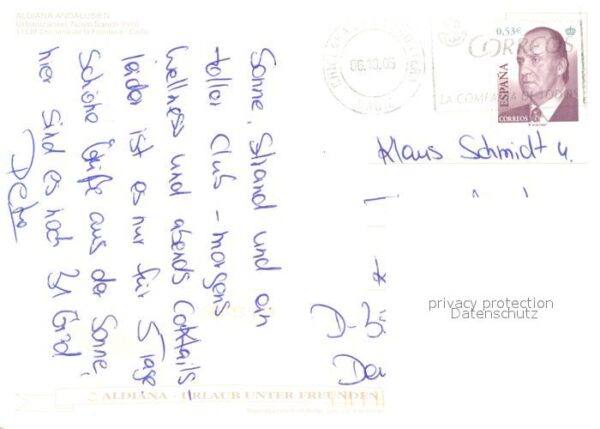 ALDIANA ANDALUSIEN
Urbanización Novo Sancti Petri
Sonne, Strand und ein
toller Club - morgens
Wellness und abends Cocktails,
leider ist es nur für 5 Tage.
Schöne Grüße aus der Sonne,
hier sind es noch 31 Grad!
Petra
06.10.05
CORREOS
LA COMPAÑIA DE TODOS
0,53€
ESPAÑA
CORREOS
Klaus Schmidt u.
D-
privacy protection
Datenschutz
ALDIANA - URLAUB UNTER FREUNDEN